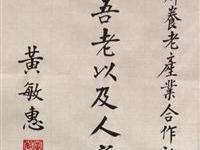 養老產業合作
吾老以及人
黃敏惠